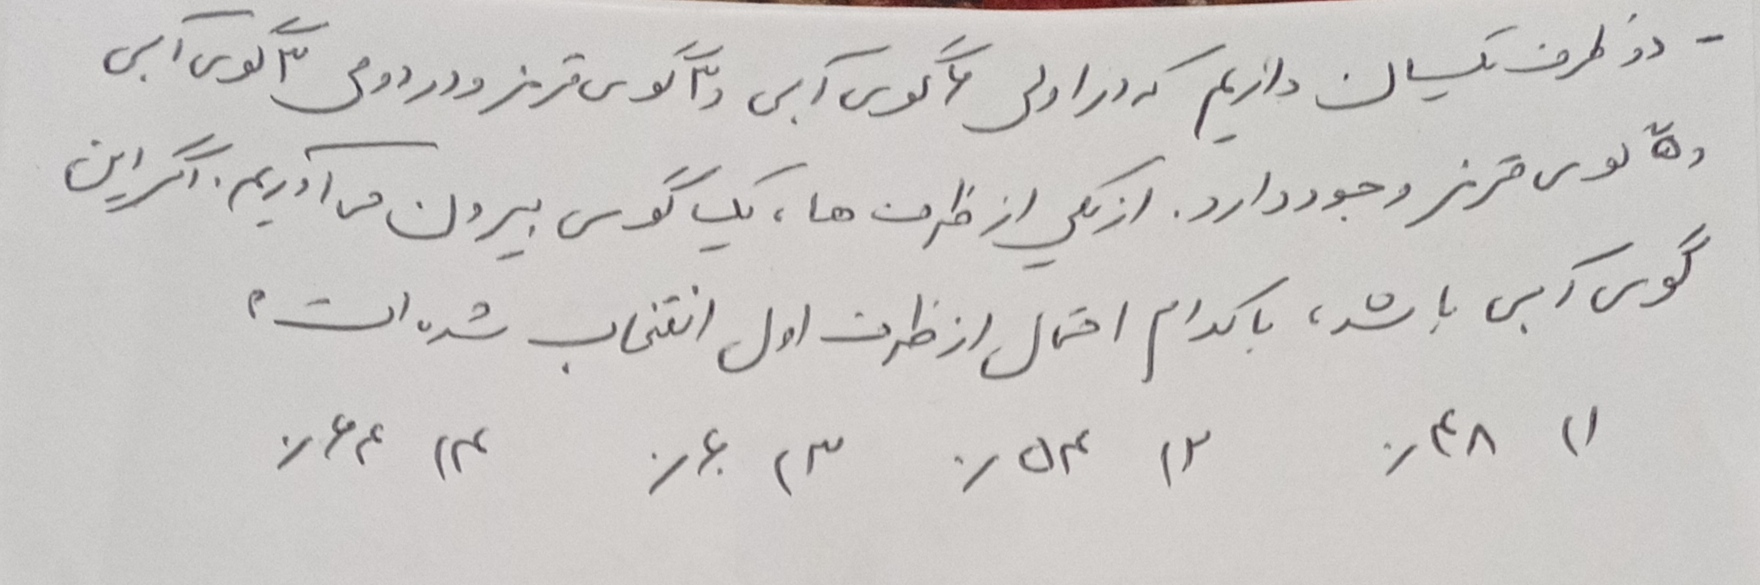 - دو ظرف یکسان داریم که در اولی ۶ گوی آبی و ۳ گوی قرمز و در دومی ۳ گوی آبی
و ۵ گوی قرمز وجود دارد. از یکی از ظرف ها، یک گوی بیرون می آوریم. اگر این
گوی آبی باشد، با کدام احتمال از ظرف اول انتخاب شده است؟
۱) ۴۸٪ ۲) ۵۴٪ ۳) ۶۰٪ ۴) ۶۴٪